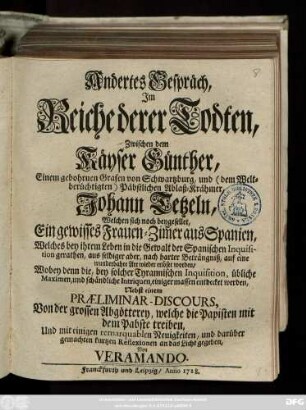 Andertes Gespräch,
Im
Reiche derer Todten,
Zwischen dem
Käyser Günther,
Einem gebohrnen Grafen von Schwartzburg, und (dem Welt-
berüchtigten) Päbstlichen Ablaß-Krähmer,
Johann Tetzeln,
Welchen sich noch beygesellet,
Ein gewisses Frauen-Zimer aus Spanien,
Welches bey ihrem Leben in die Gewalt der Spanischen Inquisi-
tion gerathen, aus selbiger aber, nach harter Beträngnüß, auf eine
wunderbahre Art wieder erlöset worden,
Wobey denn die, bey solcher Tyrannischen Inquisition, übliche
Maximen, und schändliche Intriquen, einiger massen entdecket werden,
Nebst einem
PRÆLIMINAR-DISCOURS,
Von der grossen Abgötterey, welche die Papisten mit
dem Pabste treiben,
Und mit einigen remarquablen Neuigkeiten, und darüber
gemachten kurtzen Reflexionen an das Licht gegeben,
Von
VERAMANDO.
Franckfurth und Leipzig, Anno 1728.